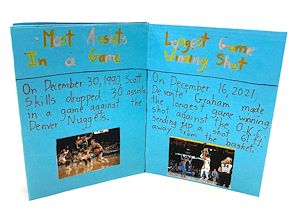 Most Assists
In a Game
On December 30, 1990, Scott
Skills dropped 30 assists
in a game against the
Denver Nuggets.
Longest Game
Winning Shot
On December 16, 2021,
Devonte' Graham made
the longest game winning
shot against the O.K.C
sending up a shot 61 ft.
away from the basket.